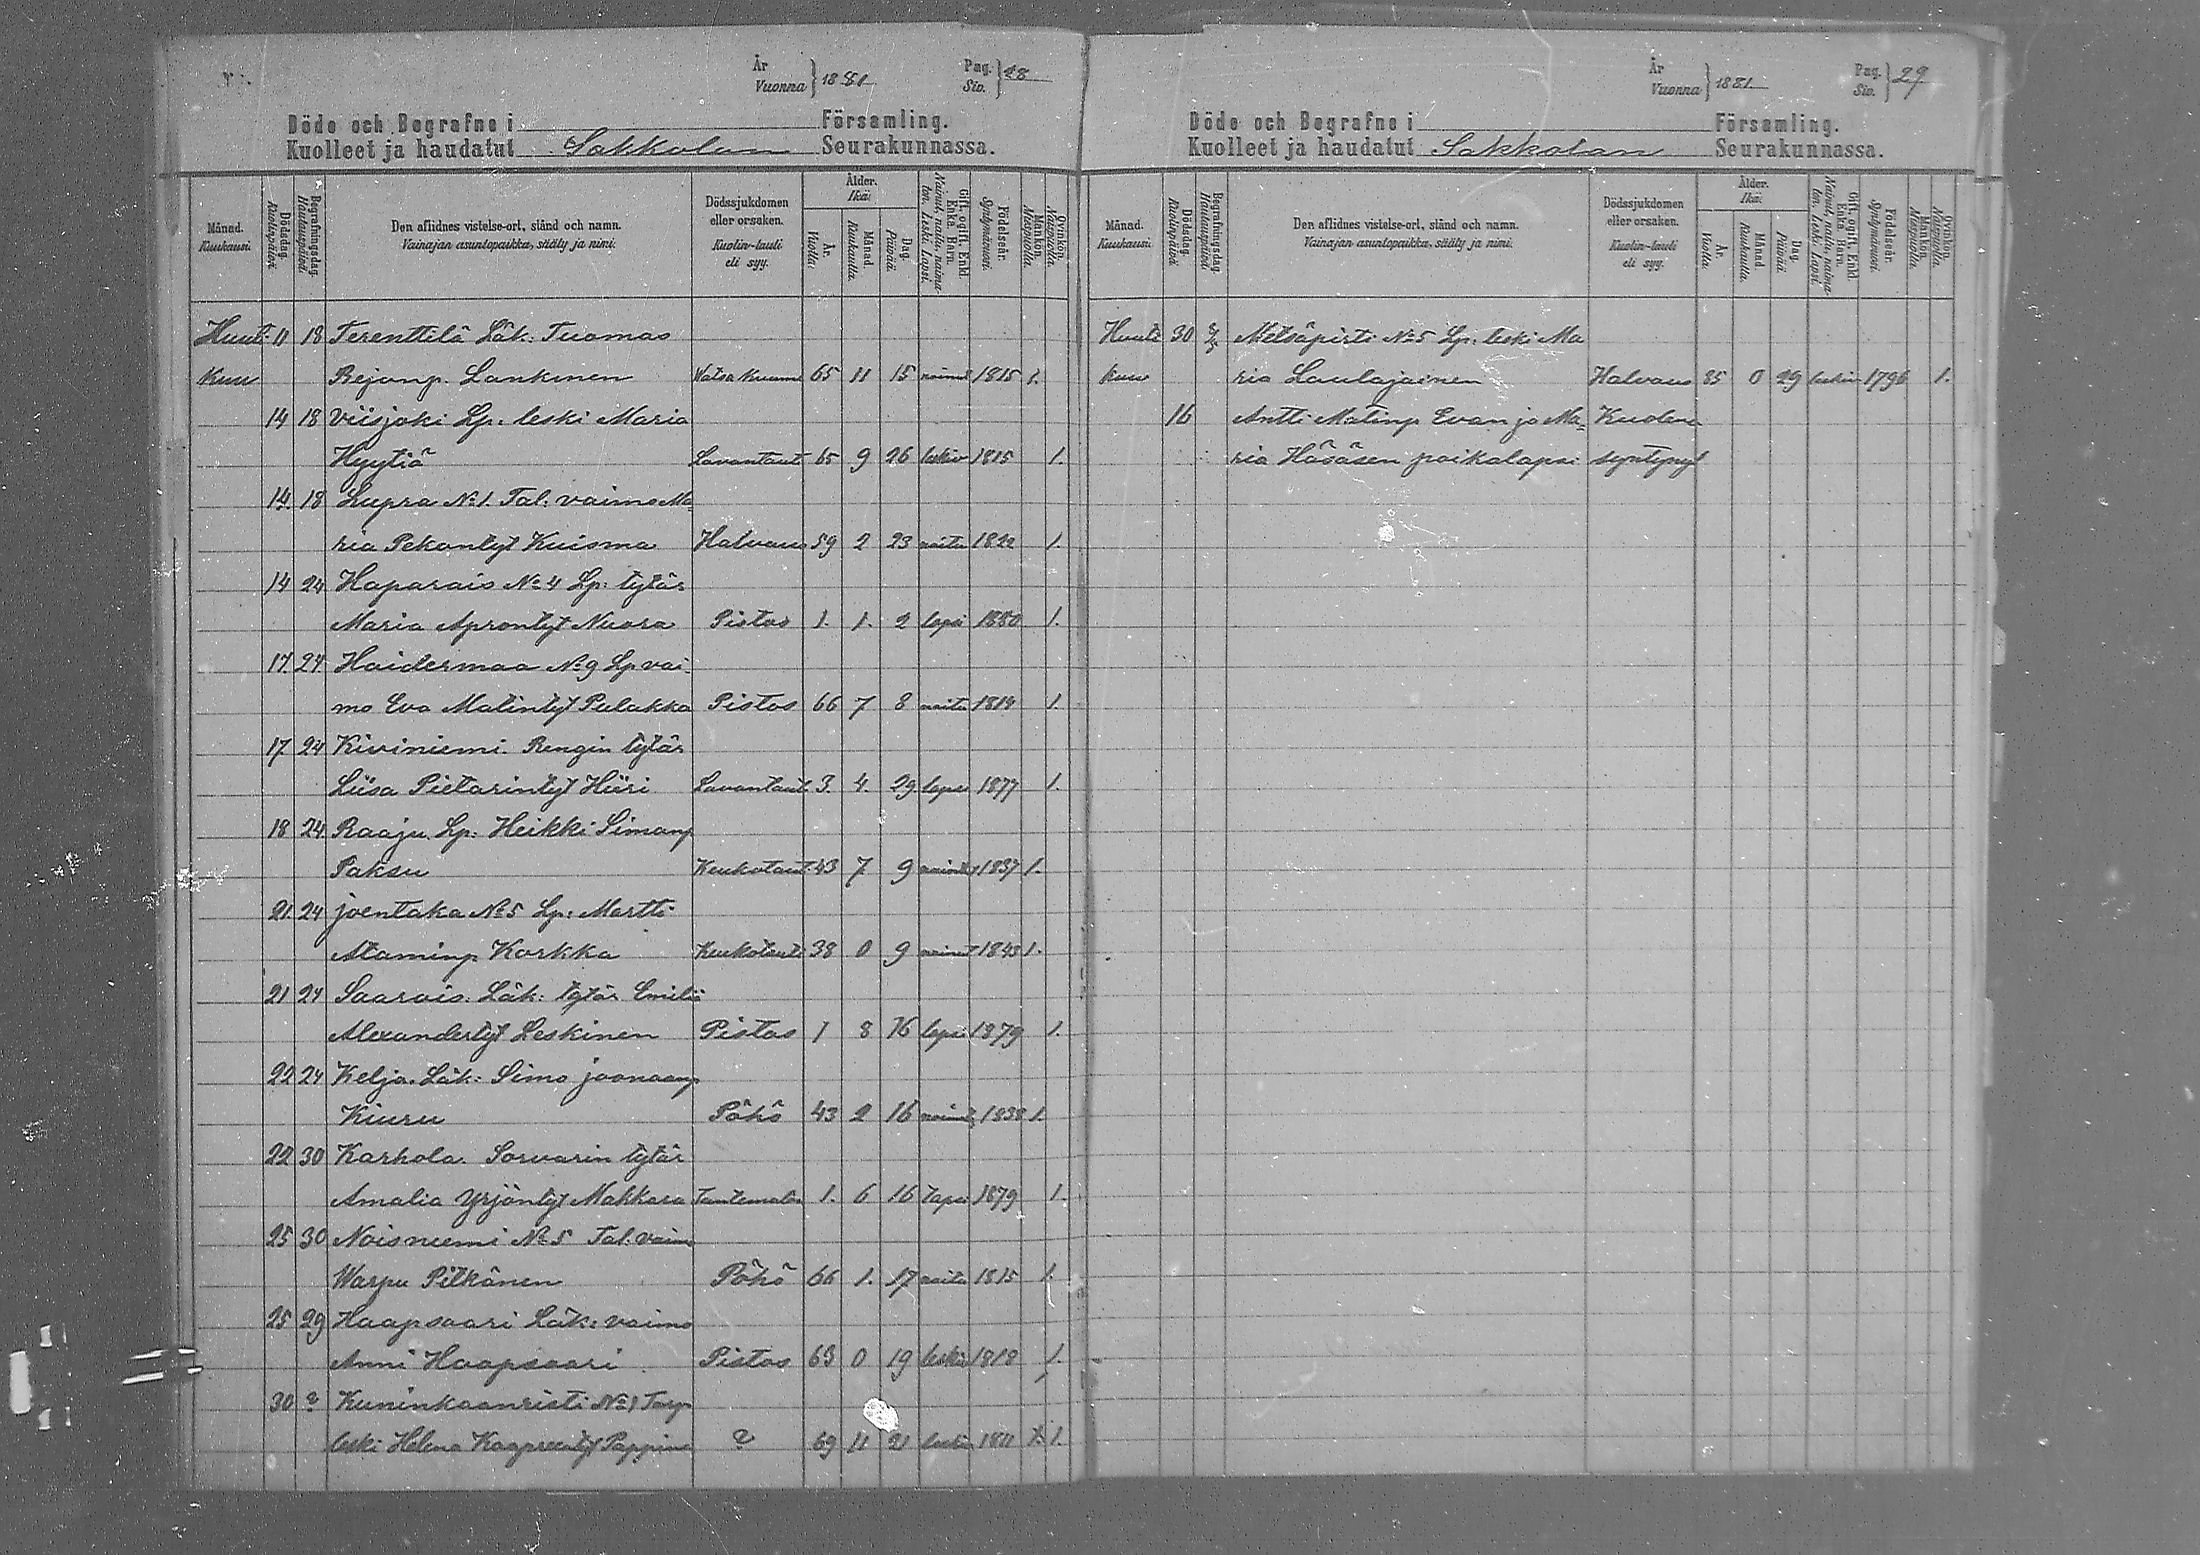 År
Vuonna } 1881
Pag.
Siv. } 28
Döde och Begrafne i Församling.
Kuolleet ja haudatut Sakkolan Seurakunnassa.
Månad. Kuukausi.
Dödsdag. Kuolinpäivä.
Begrafningsdag. Hautauspäivä.
Den aflidnes vistelse-ort, stånd och namn.
Vainajan asuntopaikka, sääty ja nimi.
Dödssjukdomen eller orsaken.
Kuolin-tauti eli syy.
Ålder. Ikä:
År. Vuotta.
Månad. Kuukautta.
Dag. Päivää.
Gift, ogift, Enkl. Enka. Barn.
Nainut, naitu, naimaton. Leski. Lapsi.
Födelseår. Syntymävuosi.
Mankön. Miespuolia.
Qvinkön. Naispuolia.
Huuti 11 18 Terenttilä Läk: Tuomas
kuu Rejonp. Lankinen Watsa 65 11 15 nainut 1815 1.
14 18 Viisjoki Lp. leski Maria
Hyytiä Lavantauti 65 9 26 leski 1815 1.
14 18 Lupra No 1. Tal. vaimo Ma
ria Pekantyt Kuisma Halvaus 59 2 23 naitu 1822 1.
14 24 Haparais No 4 Lp: tytär
Maria Aprontyt Nuora Pistos 1. 1. 2 lapsi 1880 1.
17 24 Haidermaa No 9 Lp vai
mo Eva Matintyt Pulakka Pistos 66 7 8 naitu 1814 1.
17 24 Kiviniemi. Rengin tytär
Liisa Pietarintyt Hiiri Lavantaut. 3. 4. 29 lapsi 1877 1.
18 24 Raaju Lp: Heikki Simonp
Paksu Keukotaut. 43 7 9 nainut 1837 1.
21 24 joentaka No 5 Lp: Martti
Ataminp. Korkka Keukotauti 38 0 9 nainut 1843 1.
21 24 Saarois. Läk: tytär Emilia
Alexandertyt Leskinen Pistos 1 8 16 lapsi 1879 1.
22 24 Kelja. Läk: Simo joonaanp
Kiuru Pöhö 43 2 16 nainut 1838 1.
22 30 Karhola. Sorvarin tytär
Amalia Yrjöntyt Makkara 1. 6 16 lapsi 1879 1.
25 30 Noisniemi No 5 Tal. vaimo
Warpu Pitkänen Pöhö 66 1. 17 naitu 1815 1.
25 29 Haapsaari Läk: vaimo
Anni Haapsaari Pistos 63 0 19 leski 1818 1.
30 ? Kuninkaanristi No 1 Torp
leski Helena Kaaprentyt ? 69 11 21 leski 1811 1.
År
Vuonna } 1881.
Pag.
Siv. } 29
Döde och Begrafne i Församling.
Kuolleet ja haudatut Sakkolan Seurakunnassa.
Månad. Kuukausi.
Dödsdag. Kuolinpäivä.
Begrafningsdag. Hautauspäivä.
Den aflidnes vistelse-ort, stånd och namn.
Vainajan asuntopaikka, sääty ja nimi.
Dödssjukdomen eller orsaken.
Kuolin-tauti eli syy.
Ålder. Ikä:
År. Vuotta.
Månad. Kuukautta.
Dag. Päivää.
Gift, ogift, Enkl. Enka. Barn.
Nainut, naitu, naimaton. Leski. Lapsi.
Födelseår. Syntymävuosi.
Mankön. Miespuolia.
Qvinkön. Naispuolia.
Huuti 30 Metsäpirti No 5 Lp: leski Ma
kuu ria Laulajainen Halvaus 85 0 29 leski 1796 1.
16 Antti Matinp Evan ja Ma= Kuolena
ria Häsäsen poikalapsi syntynyt